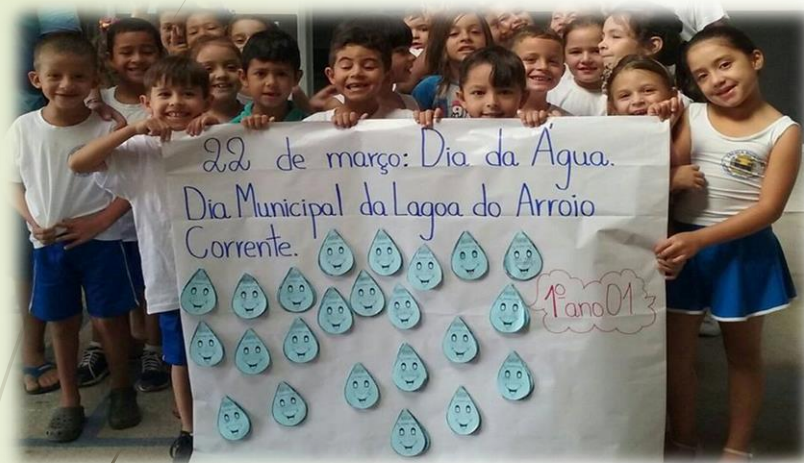 22 de março: Dia da Água.
Dia Municipal da Lagoa do Arroio
Corrente.
1º ano 01